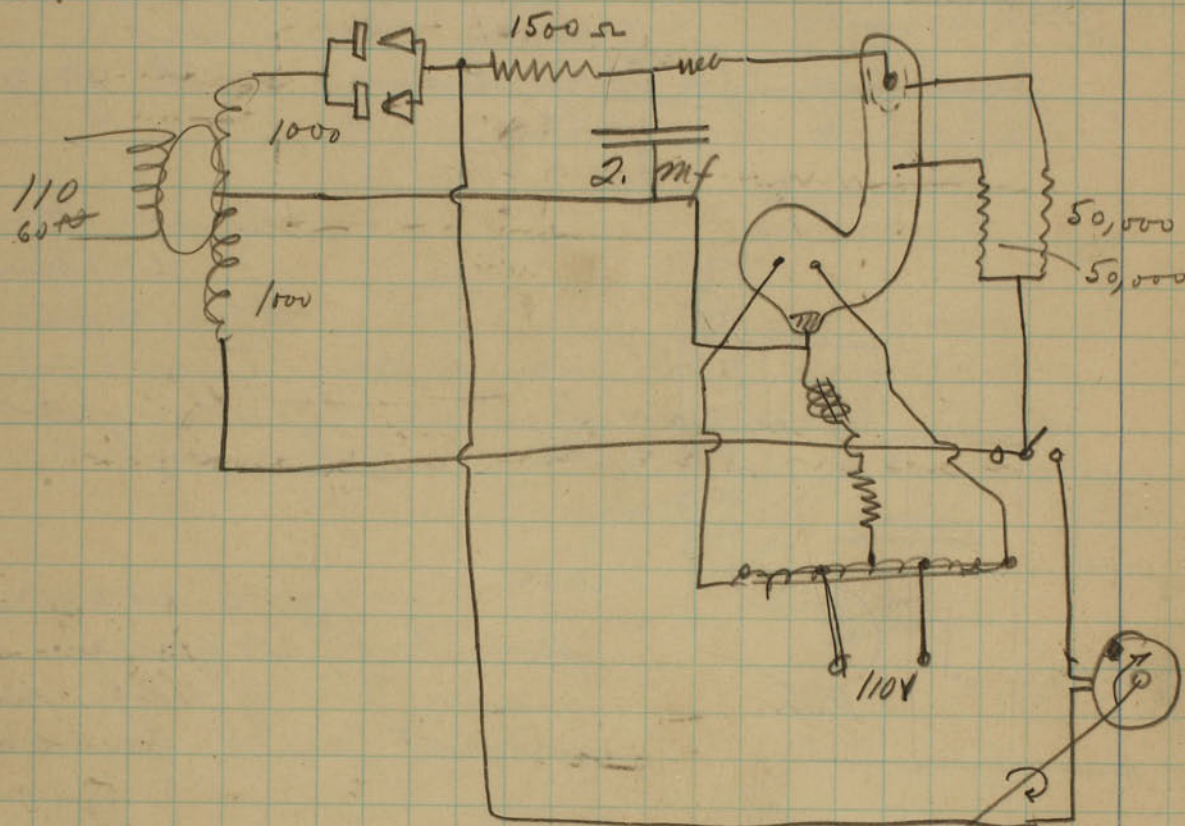 1500 Ω
1000
2. mf
110
60~
50,000
50,000
1000
110V